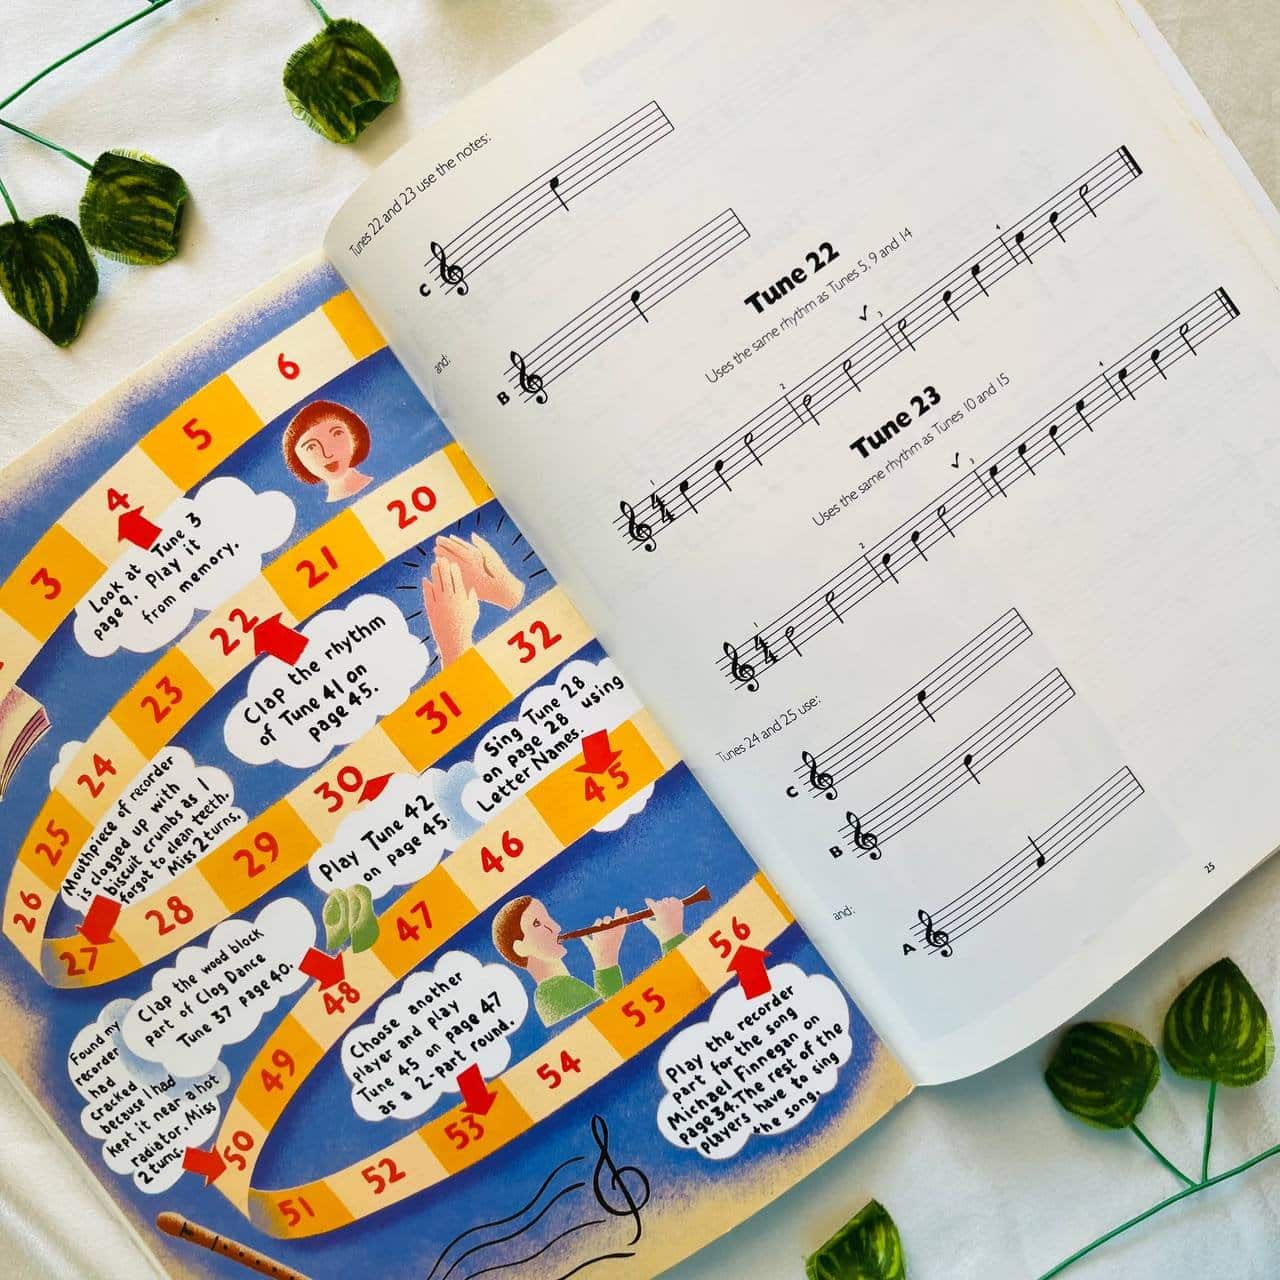 6
5
4
3
Look at Tune 3
page 9. Play it
from memory.
20
21
22
23
24
25
26
27
28
29
30
31
32
Clap the rhythm
of Tune 41 on
page 45.
Mouthpiece of recorder
is clogged up with
biscuit crumbs as I
forgot to clean teeth.
Miss 2 turns.
Play Tune 42
on page 45.
Sing Tune 28
on page 28 using
Letter Names.
45
46
47
48
49
50
51
52
53
54
55
56
Clap the wood block
part of Clog Dance
Tune 37 page 40.
Found my
recorder
had
cracked
because I had
kept it near a hot
radiator. Miss
2 turns.
Choose another
player and play
Tune 45 on page 47
as a 2-part round.
Play the recorder
part for the song
Michael Finnegan on
page 34. The rest of the
players have to sing
the song.
Tunes 22 and 23 use the notes:
C
and:
B
Tune 22
Uses the same rhythm as Tunes 5, 9 and 14
4
4
1
2
3
4
Tune 23
Uses the same rhythm as Tunes 10 and 15
4
4
1
2
3
4
Tunes 24 and 25 use:
C
B
and:
A
25